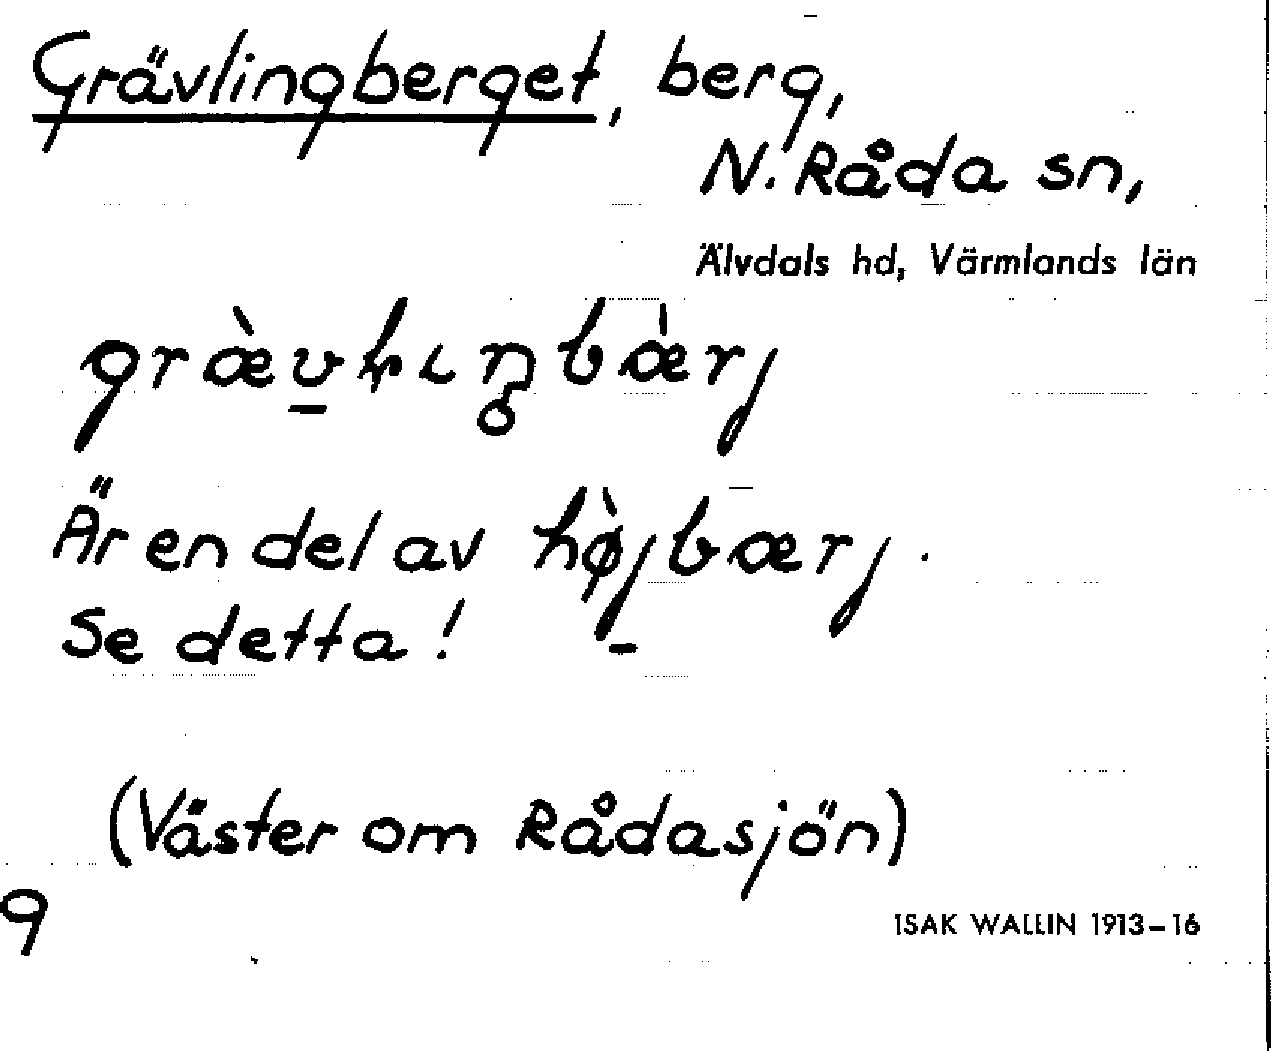 Grävlingberget, berg,
N. Råda sn,
Älvdals hd, Värmlands län
Är en del av
Se detta!
(Väster om Rådasjön)
9
ISAK WALLIN 1913-16